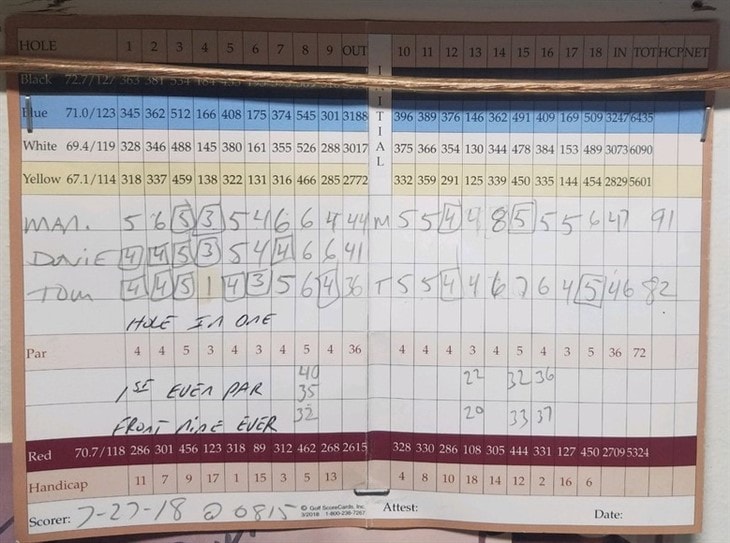 HOLE 1 2 3 4 5 6 7 8 9 OUT 10 11 12 13 14 15 16 17 18 IN TOT HCP NET
Black 72.7/127 363 381
Blue 71.0/123 345 362 512 166 408 175 374 545 301 3188 396 389 376 146 362 491 409 169 509 3247 6435
White 69.4/119 328 346 488 145 380 161 355 526 288 3017 375 366 354 130 344 478 384 153 489 3073 6090
Yellow 67.1/114 318 337 459 138 322 131 316 466 285 2772 332 359 291 125 339 450 335 144 454 2829 5601
INITIAL
5 6 5 3 5 4 6 6 4 44 M 5 5 4 4 8 5 5 5 6 47 91
4 4 5 3 5 4 4 6 6 41
TOM 4 4 5 1 4 3 5 6 4 36 T 5 5 4 4 6 7 6 4 5 46 82
HOLE IN ONE
Par 4 4 5 3 4 3 4 5 4 36 4 4 4 3 4 5 4 3 5 36 72
40 22 32 36
1ST EVER PAR 35
FRONT NINE EVER 32 20 33 37
Red 70.7/118 286 301 456 123 318 89 312 462 268 2615 328 330 286 108 305 444 331 127 450 2709 5324
Handicap 11 7 9 17 1 15 3 5 13 4 8 10 18 14 12 2 16 6
Scorer: 7-27-18 @ 0815 © Golf ScoreCards, Inc. 3/2018 1-800-238-7267 Attest: Date: